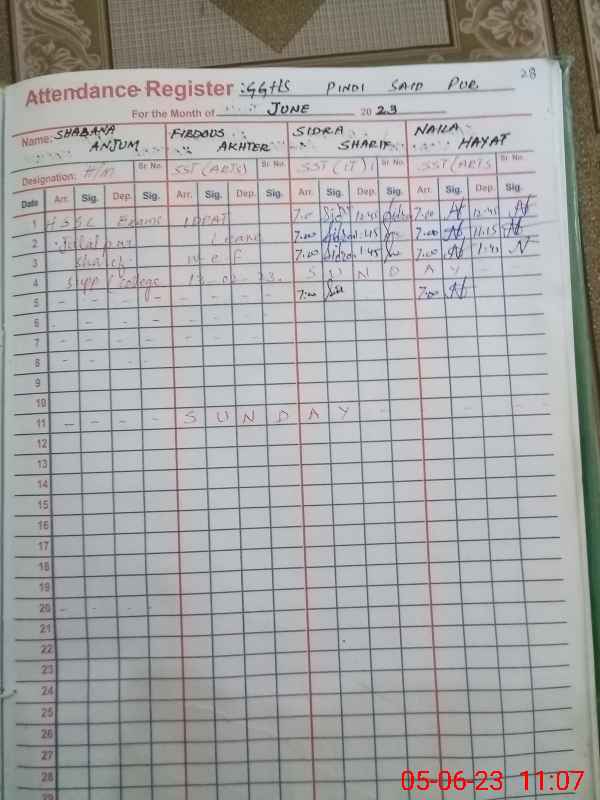 28
Attendance Register : GGHS PINDI SAID PUR.
For the Month of JUNE 2023
Name: SHABANA ANJUM FIRDOUS AKHTER SIDRA SHARIF NAILA HAYAT
Designation: H/M Sr No. SST (ARTS) Sr No. SST (IT) Sr No. SST (ARTS Sr No.
Date Arr. Sig. Dep. Sig. Arr. Sig. Dep. Sig. Arr. Sig. Dep. Sig. Arr. Sig. Dep. Sig.
1 HSSC Exams 12:45 7:00 12:45
2 Jalalpur Leave 7:00 1:15 7:00 11:15
3 w e f 7:00 1:45 7:00 1:45
4 Supp College SUNDAY
5 - - - - 7:00 7:00
6 - - - -
7 - - - -
8 - - - -
9
10
11 - - - - SUNDAY - -
12
13
14
15
16
17
18
19
20 - - - -
21
22
23
24
25
26
27
28
29
05-06-23 11:07